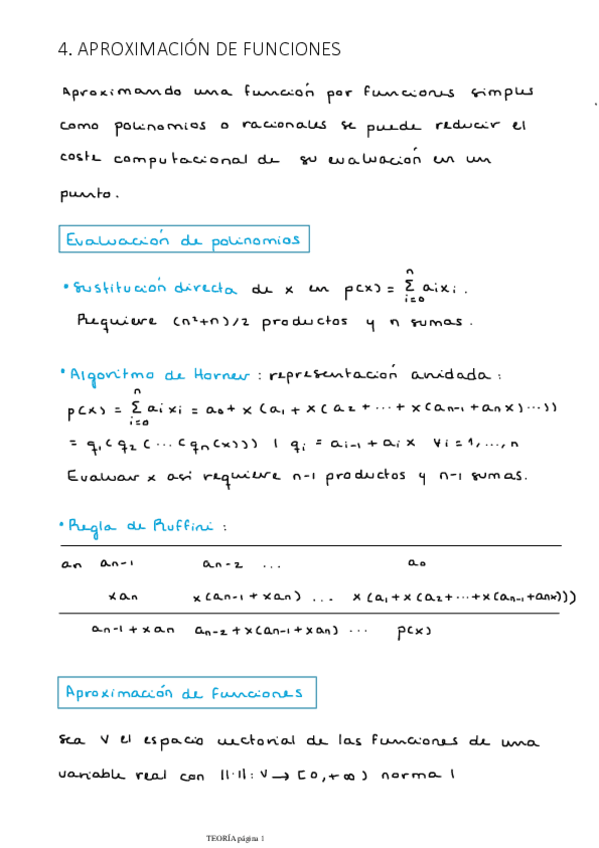 4. APROXIMACIÓN DE FUNCIONES
Aproximando una función por funciones simples
como polinomios o racionales se puede reducir el
coste computacional de su evaluación en un
punto.
Evaluación de polinomios
• Sustitución directa de x en p(x) = Σ_{i=0}^{n} aixi.
Requiere (n²+n)/2 productos y n sumas.
• Algoritmo de Horner : representación anidada :
p(x) = Σ_{i=0}^{n} ai xi = a0 + x (a1 + x (a2 + ... + x(an-1 + an x)...))
= q1 ( q2 ( ... ( qn(x)))) | qi = ai-1 + ai x ∀i = 1, ..., n
Evaluar x así requiere n-1 productos y n-1 sumas.
• Regla de Ruffini :
an an-1 an-2 ... a0
xan x(an-1 + xan) ... x(a1 + x(a2 + ... + x(an-1 + anx)))
an-1 + xan an-2 + x(an-1 + xan) ... p(x)
Aproximación de funciones
Sea V el espacio vectorial de las funciones de una
variable real con ||·|| : V → [0, +∞) norma |
TEORÍA página 1